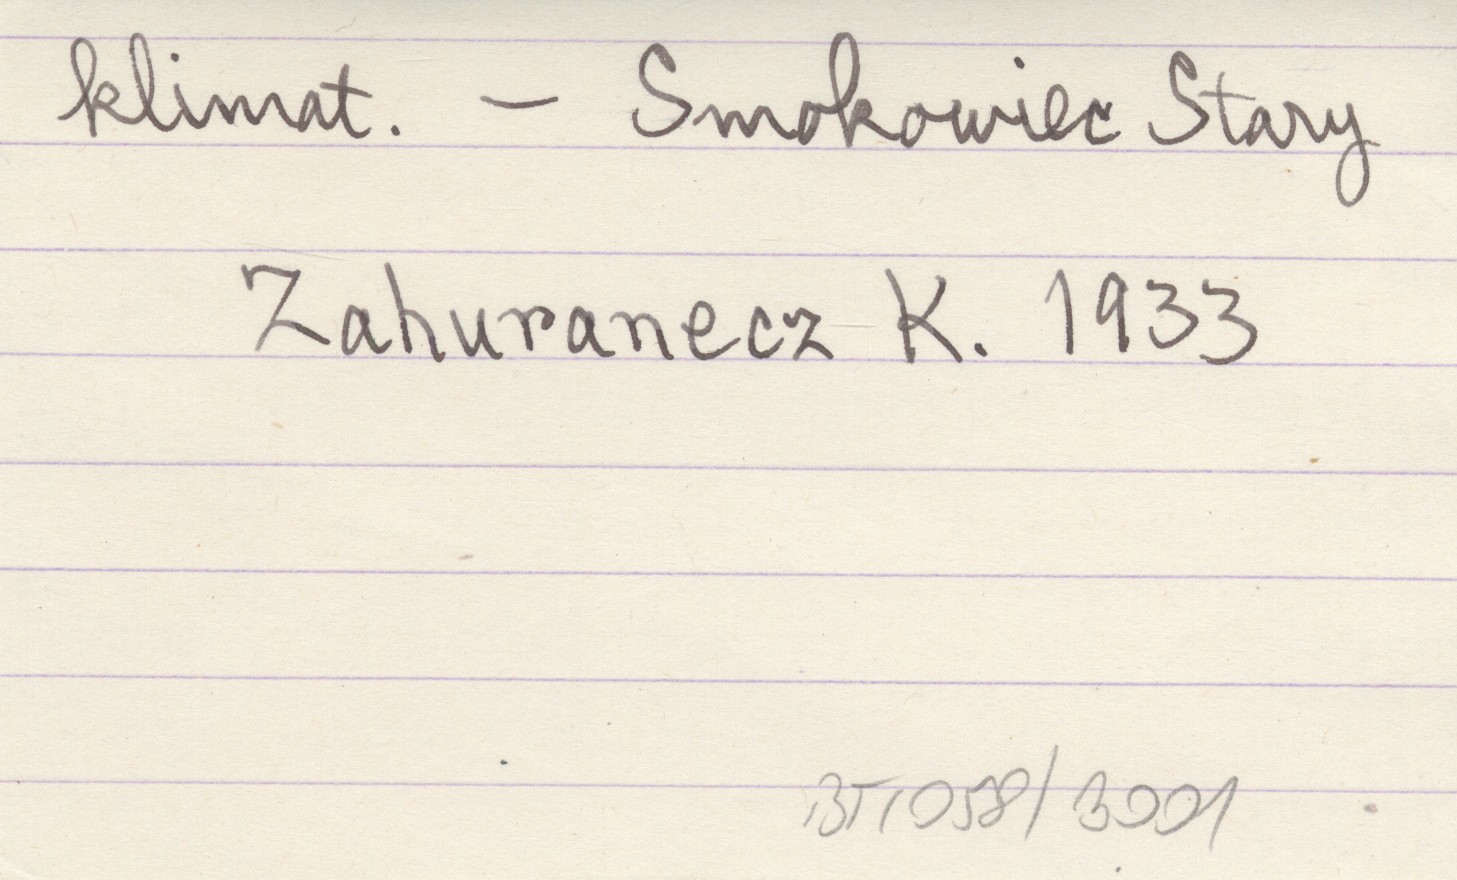 klimat. — Smokowiec Stary
Zahuranecz K. 1933
BT1058/3001